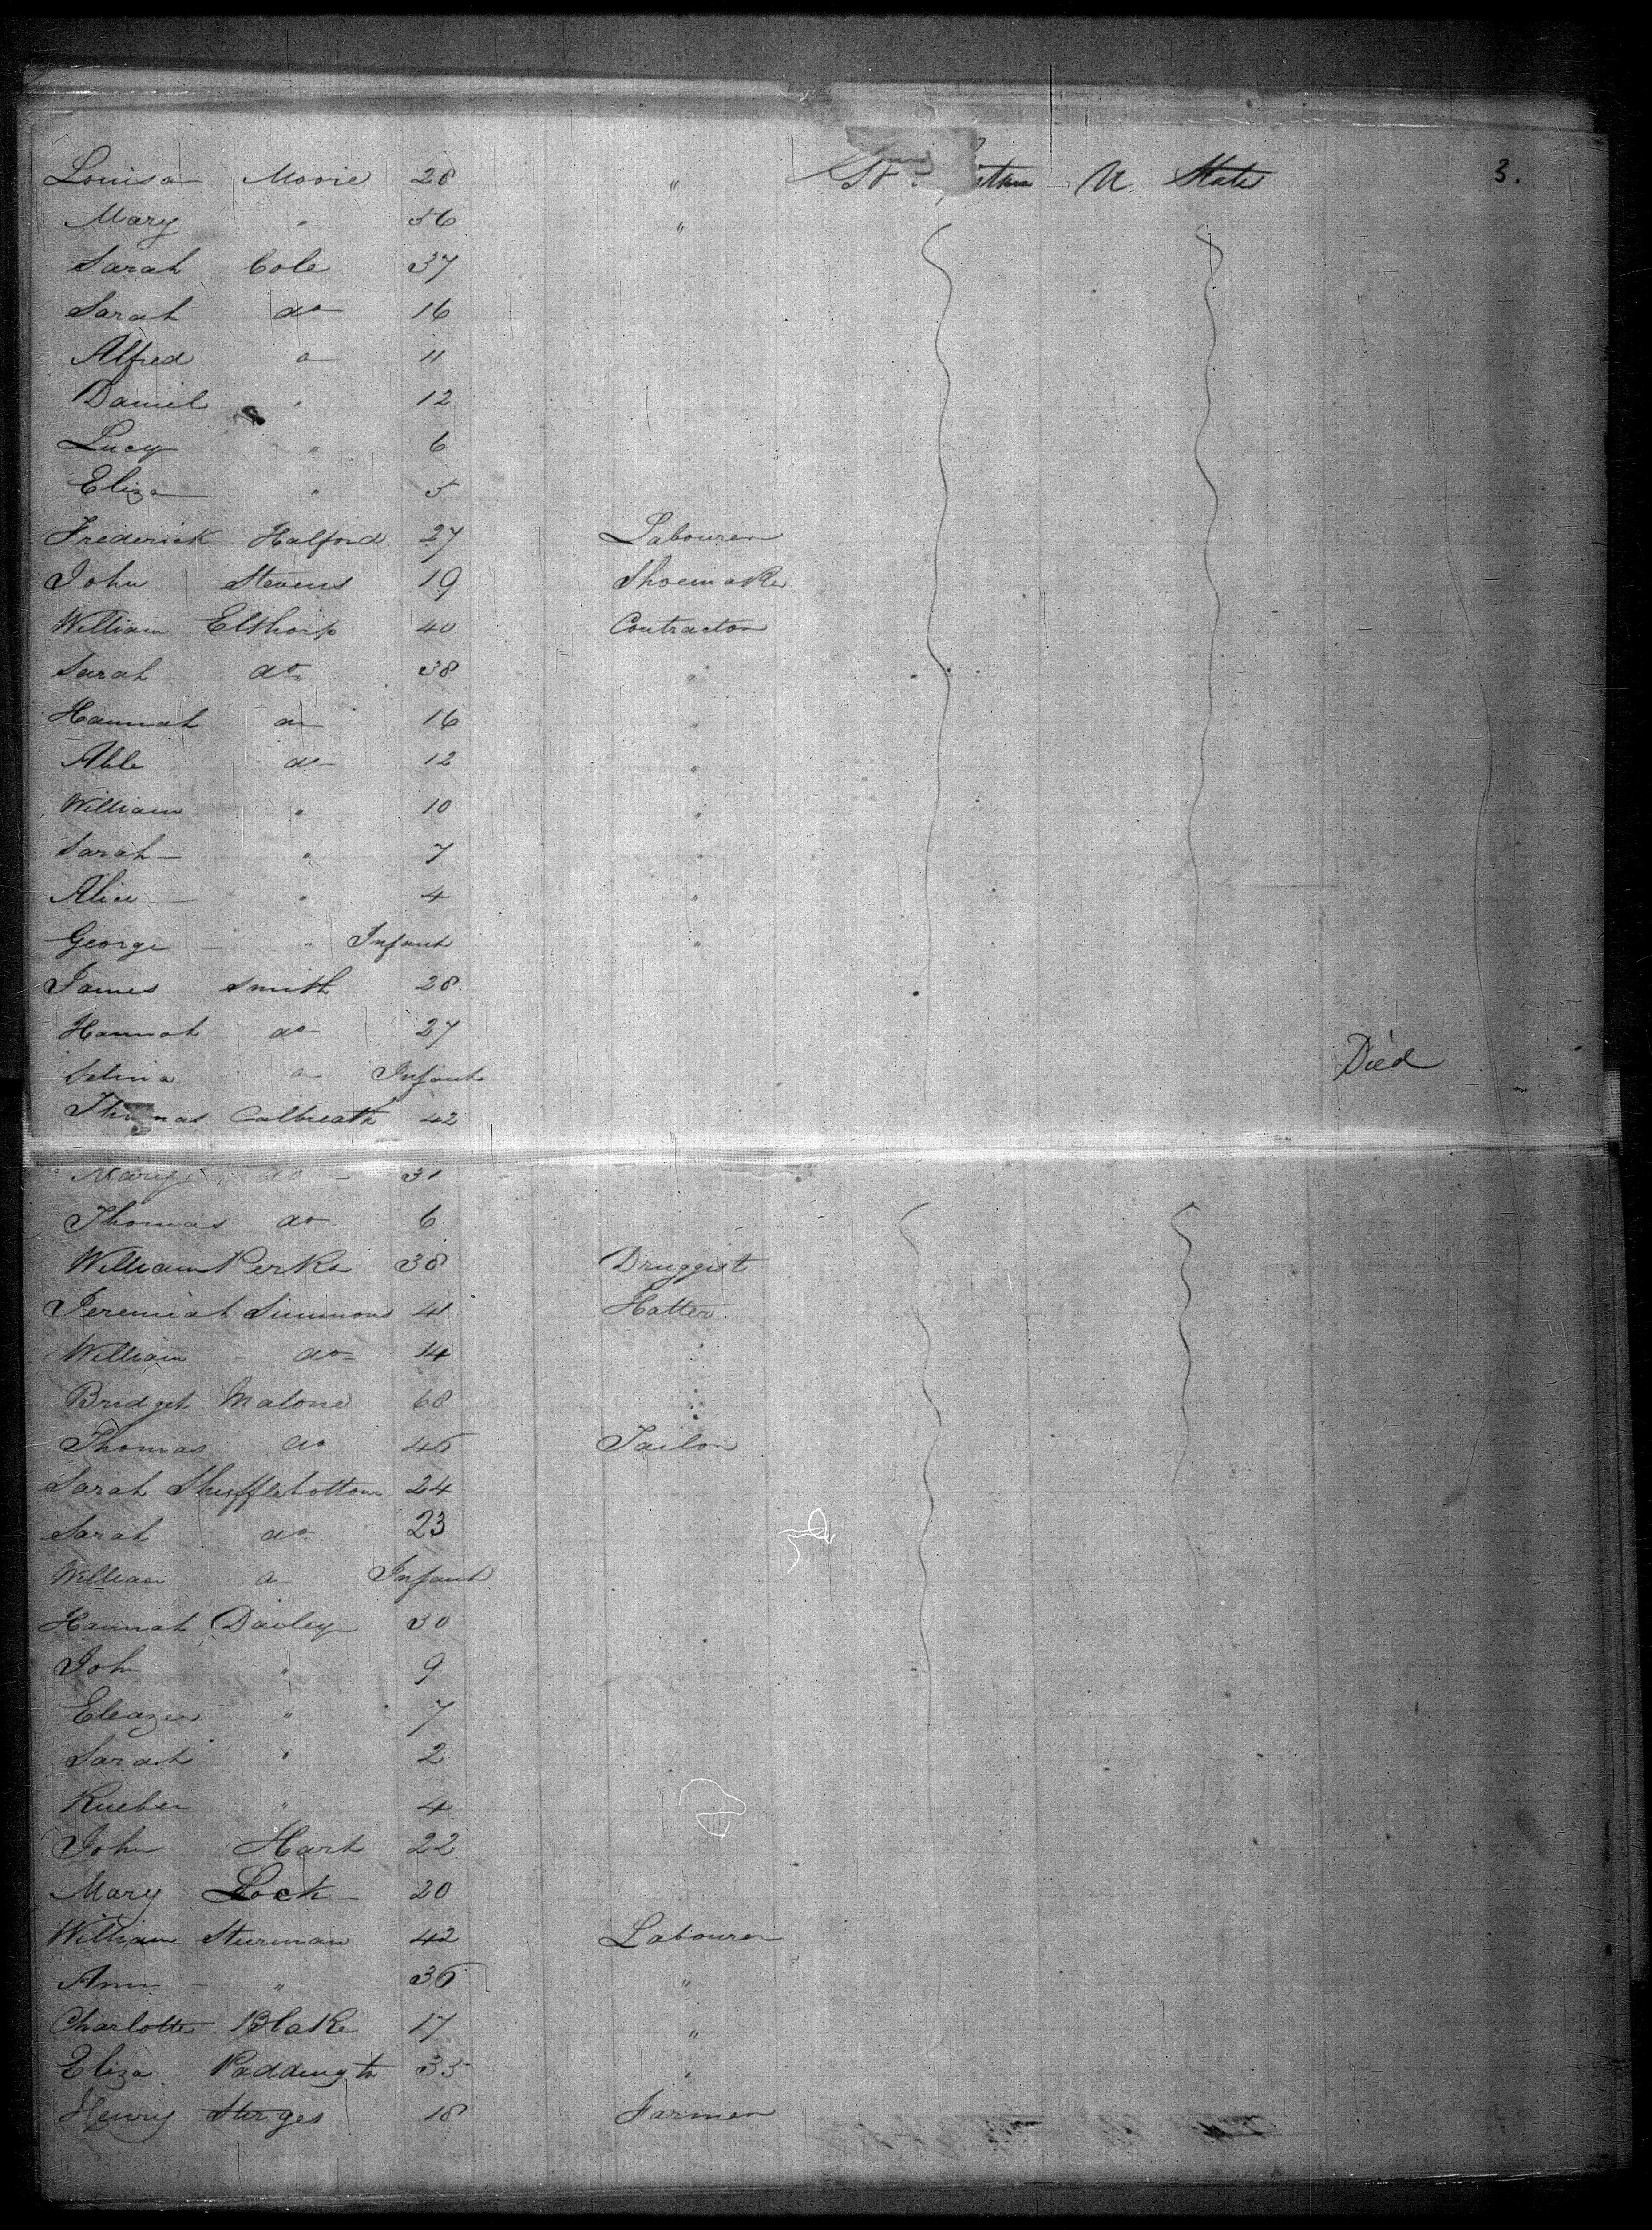 Louisa Moore 28 " Gt Britain U States 3.
Mary " 56 "
Sarah Cole 37
Sarah do 16
Alfred do 11
Daniel " 12
Lucy " 6
Eliza " 5
Frederick Halford 27 Labourer
John Stevens 19 Shoemaker
William Elthorp 40 Contractor
Sarah do 38 "
Hannah do 16 "
Able do 12 "
William " 10 "
Sarah " 7 "
Alice " 4 "
George " Infant "
James Smith 28
Hannah do 27
Selina do Infant Died
Thomas Calbreath 42
Mary do 31
Thomas do 6
William Perks 38 Druggist
Jeremiah Simmons 41 Hatter
William do 14 "
Bridget Malone 68 "
Thomas do 45 Tailor
Sarah Shufflebottom 24
Sarah do 23
William do Infant
Hannah Davley 30
John " 9
Eleazer " 7
Sarah " 2
Rueben " 4
John Hart 22
Mary Lock 20
William Sturman 42 Labourer
Ann " 36 "
Charlotte Blake 17 "
Eliza Paddingto 35 "
Henry Sturges 18 Farmer